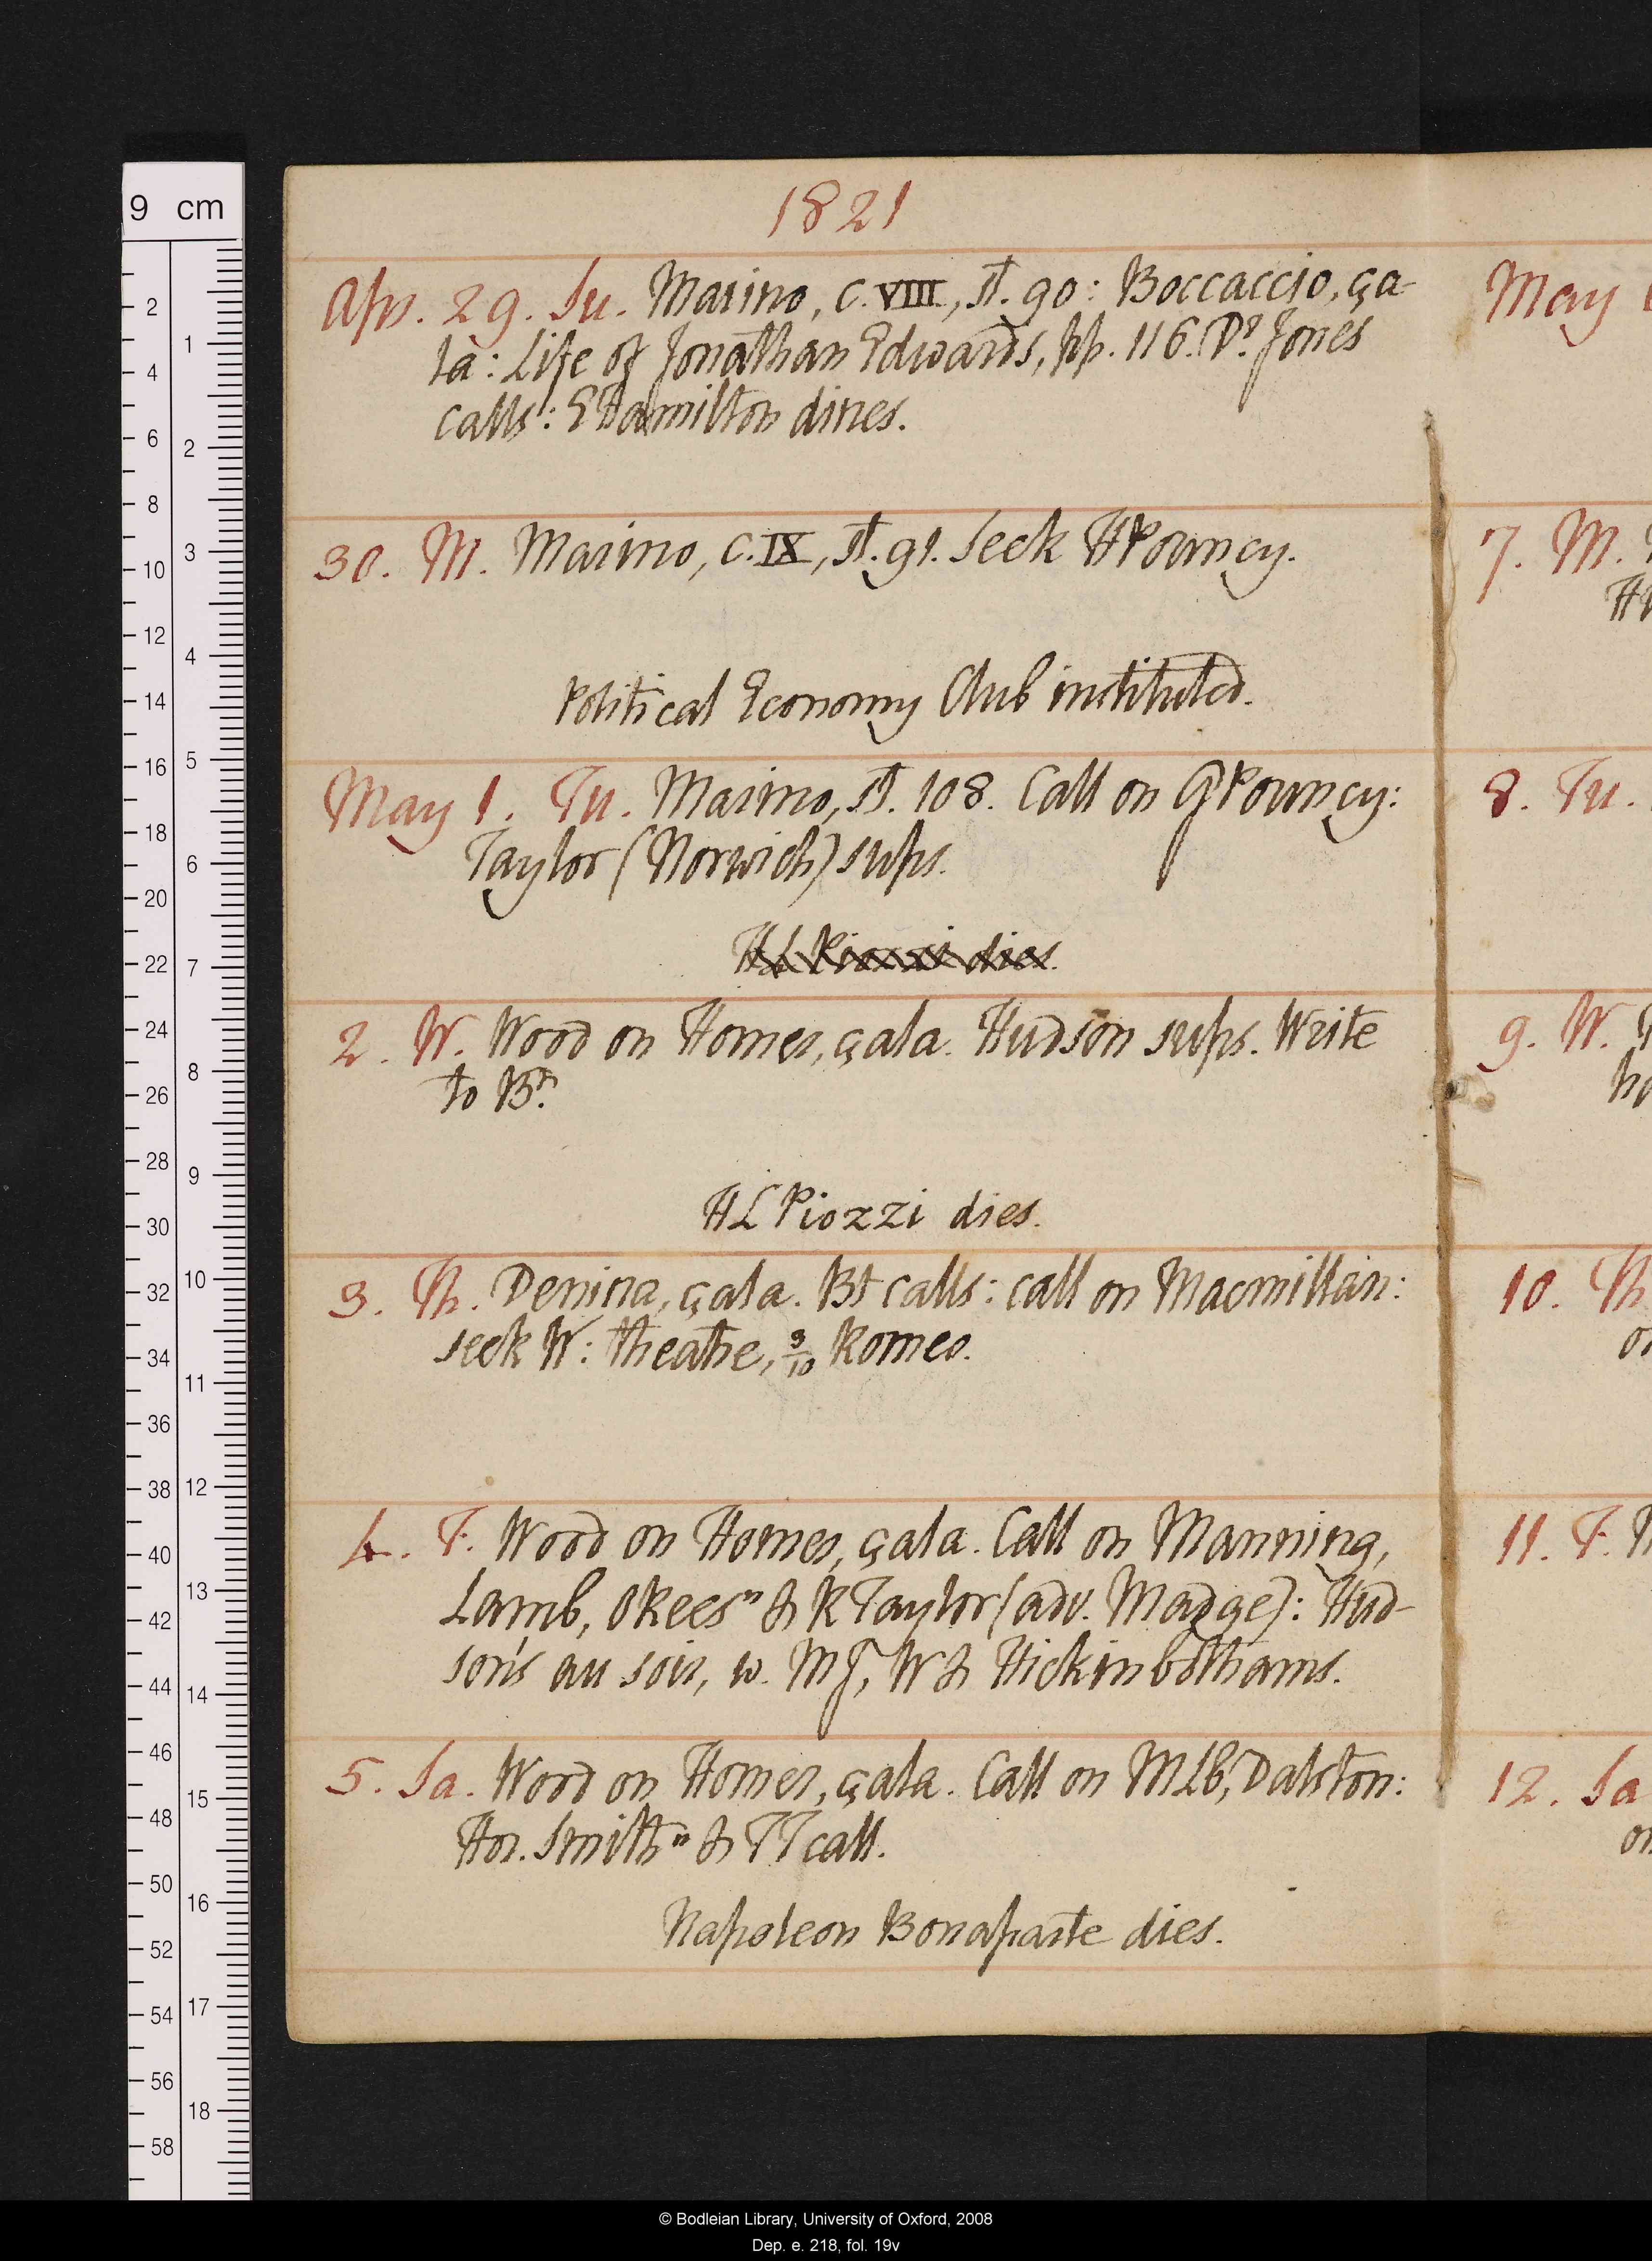 1821
Apr. 29. Su. Marino, c. VIII, st. 90: Boccaccio, ça-
la: Life of Jonathan Edwards, pp. 116. Dr. Jones
calls: E Hamilton dines.
30. M. Marino, c. IX, st. 91. Seek H Pouncy.
Political Economy Club instituted.
May 1. Tu. Marino, st. 108. Call on G Pouncy:
Taylor (Norwich) sups.
HL Piozzi dies.
2. W. Wood on Homer, çala. Hudson sups. Write
to Bn.
HL Piozzi dies.
3. Th. Denina, çala. Bt calls: call on Macmillan:
seek W: theatre, 3/10 Romeo.
4. F. Wood on Homer, çala. Call on Manning,
Lamb, Okees n & R Taylor (adv. Madge): Hud-
son's au soir, w. MJ, W & Hickinbothams.
5. Sa. Wood on Homer, çala. Call on MLB, Dalston:
Hor. Smith n & TT call.
Napoleon Bonaparte dies.
May
7. M.
8. Tu.
9. W.
10. Th
11. F.
12. Sa
9 cm
2
4
6
8
10
12
14
16
18
20
22
24
26
28
30
32
34
36
38
40
42
44
46
48
50
52
54
56
58
1
2
3
4
5
6
7
8
9
10
11
12
13
14
15
16
17
18
© Bodleian Library, University of Oxford, 2008
Dep. e. 218, fol. 19v